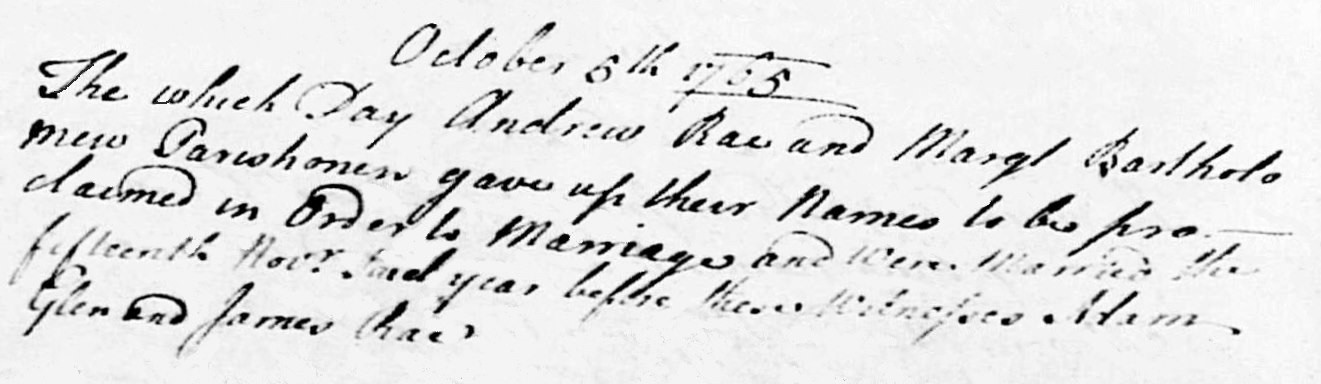 October 5th 1765
The which Day Andrew Rae and Margt Bartholo
mew Parishoners gave up their Names to be pro-
claimed in Order to Marriage and were Married the
fifteenth Novr. said year before these Witnesses Adam
Glen and James Rae